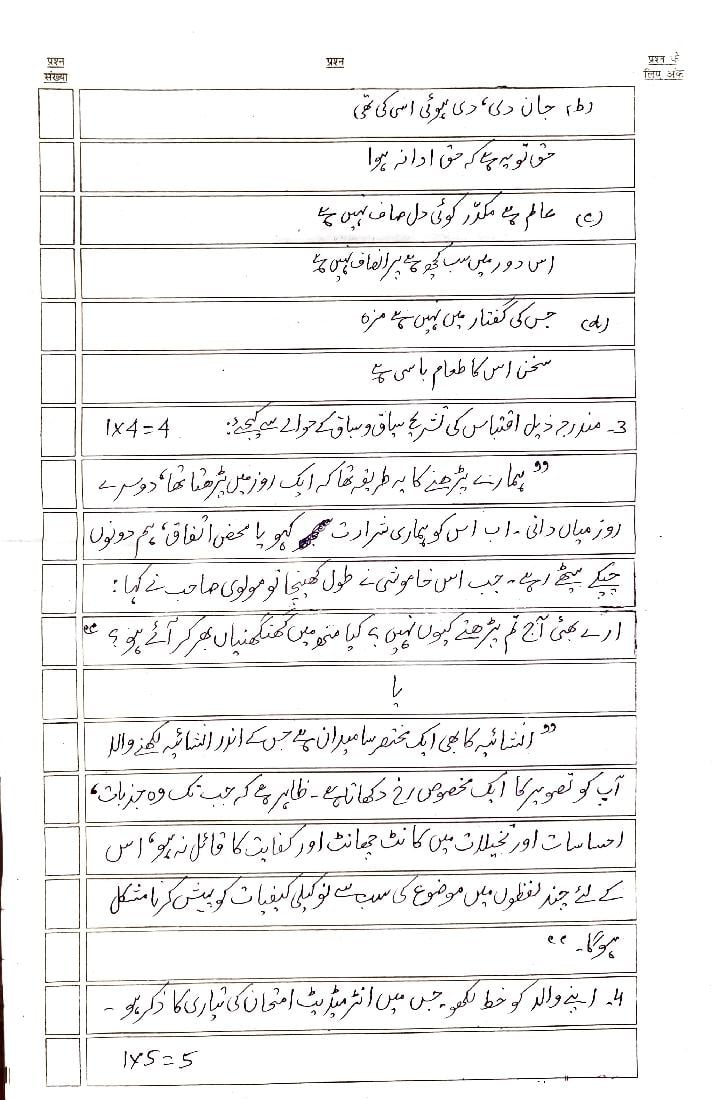 प्रश्न संख्या
प्रश्न
प्रश्न के लिए अंक
(b) جان دی، دی ہوئی اسی کی تھی
حق تو یہ ہے کہ حق ادا نہ ہوا
(c) عالم ہے مکدّر کوئی دل صاف نہیں ہے
اس دور میں سب کچھ ہے پر انصاف نہیں ہے
(d) جس کی گفتار میں نہیں ہے مزہ
سخن اس کا طعام باسی ہے
3- مندرجہ ذیل اقتباس کی تشریح سیاق و سباق کے حوالے سے کیجئے: 1x4=4
"ہمارے پڑھنے کا یہ طریقہ تھا کہ ایک روز میں پڑھتا تھا، دوسرے
روز میاں دانی۔ اب اس کو ہماری شرارت کہو یا محض اتفاق، ہم دونوں
چپکے بیٹھے رہے۔ جب اس خاموشی نے طول کھینچا تو مولوی صاحب نے کہا:
ارے بھئی آج تم پڑھتے کیوں نہیں؟ کیا منھ میں گھنگھنیاں بھر کر آئے ہو؟"
یا
"انشائیہ کا بھی ایک مختصر سا میدان ہے جس کے اندر انشائیہ لکھنے والا
آپ کو تصویر کا ایک مخصوص رخ دکھاتا ہے۔ ظاہر ہے کہ جب تک وہ جذبات،
احساسات اور تخیلات میں کانٹ چھانٹ اور کفایت کا قائل نہ ہو، اس
کے لئے چند لفظوں میں موضوع کی سب سے نوکیلی کیفیات کو پیش کرنا مشکل
ہوگا۔"
4- اپنے والد کو خط لکھو۔ جس میں انٹرمیڈیٹ امتحان کی تیاری کا ذکر ہو۔
1x5=5